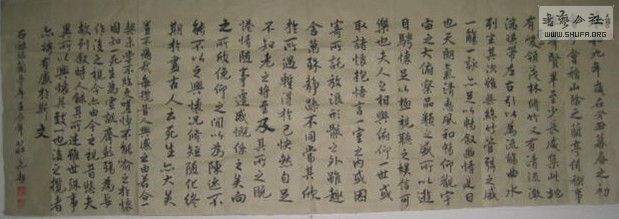 九年歲在癸丑暮春之初
會稽山陰之蘭亭脩禊事
羣賢畢至少長咸集此地
有峻領茂林脩竹又有清流激
湍暎帶左右引以為流觴曲水
列坐其次雖無絲竹管弦之盛
一觴一詠亦足以暢敘幽情是日
也天朗氣清惠風和暢仰觀宇
宙之大俯察品類之盛所以遊
目騁懷足以極視聽之娛信可
樂也夫人之相與俯仰一世或
取諸懷抱悟言一室之內或因
寄所託放浪形骸之外雖趣
舍萬殊靜躁不同當其欣
於所遇暫得於己快然自足
不知老之將至及其所之既
惓情隨事遷感慨係之矣向
之所欣俛仰之間以為陳迹不
能不以之興懷況脩短隨化終
期於盡古人云死生亦大矣
豈不痛哉每攬昔人興感之由若合一
契未嘗不臨文嗟悼不能喻之於懷
固知死生為虛誕齊彭殤為妄
作後之視今亦由今之視昔悲夫
故列敘時人錄其所述雖世殊事
異所以興懷其致一也後之攬者
亦將有感於斯文
蘭亭
WWW.SHUFA.ORG